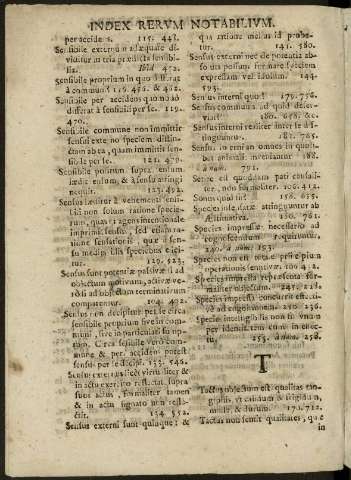 INDEX RERVM NOTABILIVM.
per accidens. 115. 448.
Sensibile externum adæquate di-
viditur in tria prædicta sensibi-
lia. ibid. 472.
Sensibile proprium in quo differat
à communi 119. 456. & 462.
Sensibile per accidens quomodo
differat à sensibili per se. 119.
470.
Sensibile commune non immittit
sensui externo speciem distin-
ctam ab ea, quam immittit sensi-
bile per se. 121. 479.
Sensibile positum supra sensum
lædit ensum, & à sensu attingi
nequit. 123. 492.
Sensus læditur à vehementi sensi-
bili non solum ratione specie-
rum, quas et agens intensionale
imprimit sensui, sed etiam ra-
tione sensationis, quæ à sen-
su mediantibus speciebus elici-
tur. 129. 523.
Sensus sunt potentiæ passivæ ad
objectum motivum, activæ ve-
rò ad objectum terminativum
comparantur. 104. 402.
Sensus non decipitur per se circa
sensibile proprium sive in com-
muni, sive in particulari sum-
ptum. Circa sensibile verò com-
mune & per accidens potest
sensus per se decipi. 133. 546.
Sensus exterius elicit verus liter &
in actu exercito reflectat supra
suos actus, formaliter tamen
& in actu signato non refle-
ctit. 134 552.
Sensus externi sunt quinque: &
qua ratione melius id probe-
tur. 141. 580.
Sensus externi nec de potentia ab-
soluta possunt formare speciem
expressam vel idolum. 144.
593.
Sensus interni quot? 179. 756.
Sensus communis ad quid deser-
viat? 180. 658. &c.
Sensus interni realiter inter se di-
stinguuntur. 182. 765.
Sensus non omnes in quoli-
bet animali inveniantur 188.
à num. 791.
est quoddam pati consul-
ter, non simpliciter. 106. 412.
Somnus quid sit? 156. 655.
Species insensatæ attinguntur ab
Æstimativa. 180. 761.
Species impressæ necessario ad
cognoscendum requiruntur.
240. à num. 193.
Species non est totale principium
operationis cognitivæ. 106 412.
Species impressa repræsentat for-
maliter objectum. 241. 218.
Species impressa concurrit effecti-
vè ad cognitionem. 250. 236.
Species intelligibilis non sit vnum
per identitatem cum intellec-
tu. 253. à num. 256.
T
Tactus objectum est qualitas tan-
gibilis, vt calidum & frigidum,
molle, & durum. 170. 712.
Tactus non sensit qualitates, quæ
in